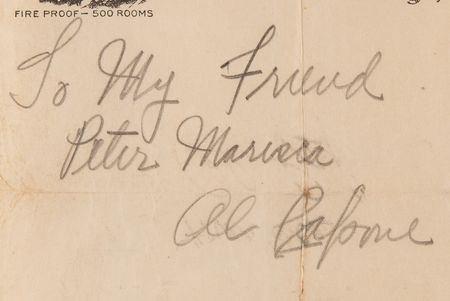 FIRE PROOF — 500 ROOMS
To My Friend
Peter Maresca
Al Capone